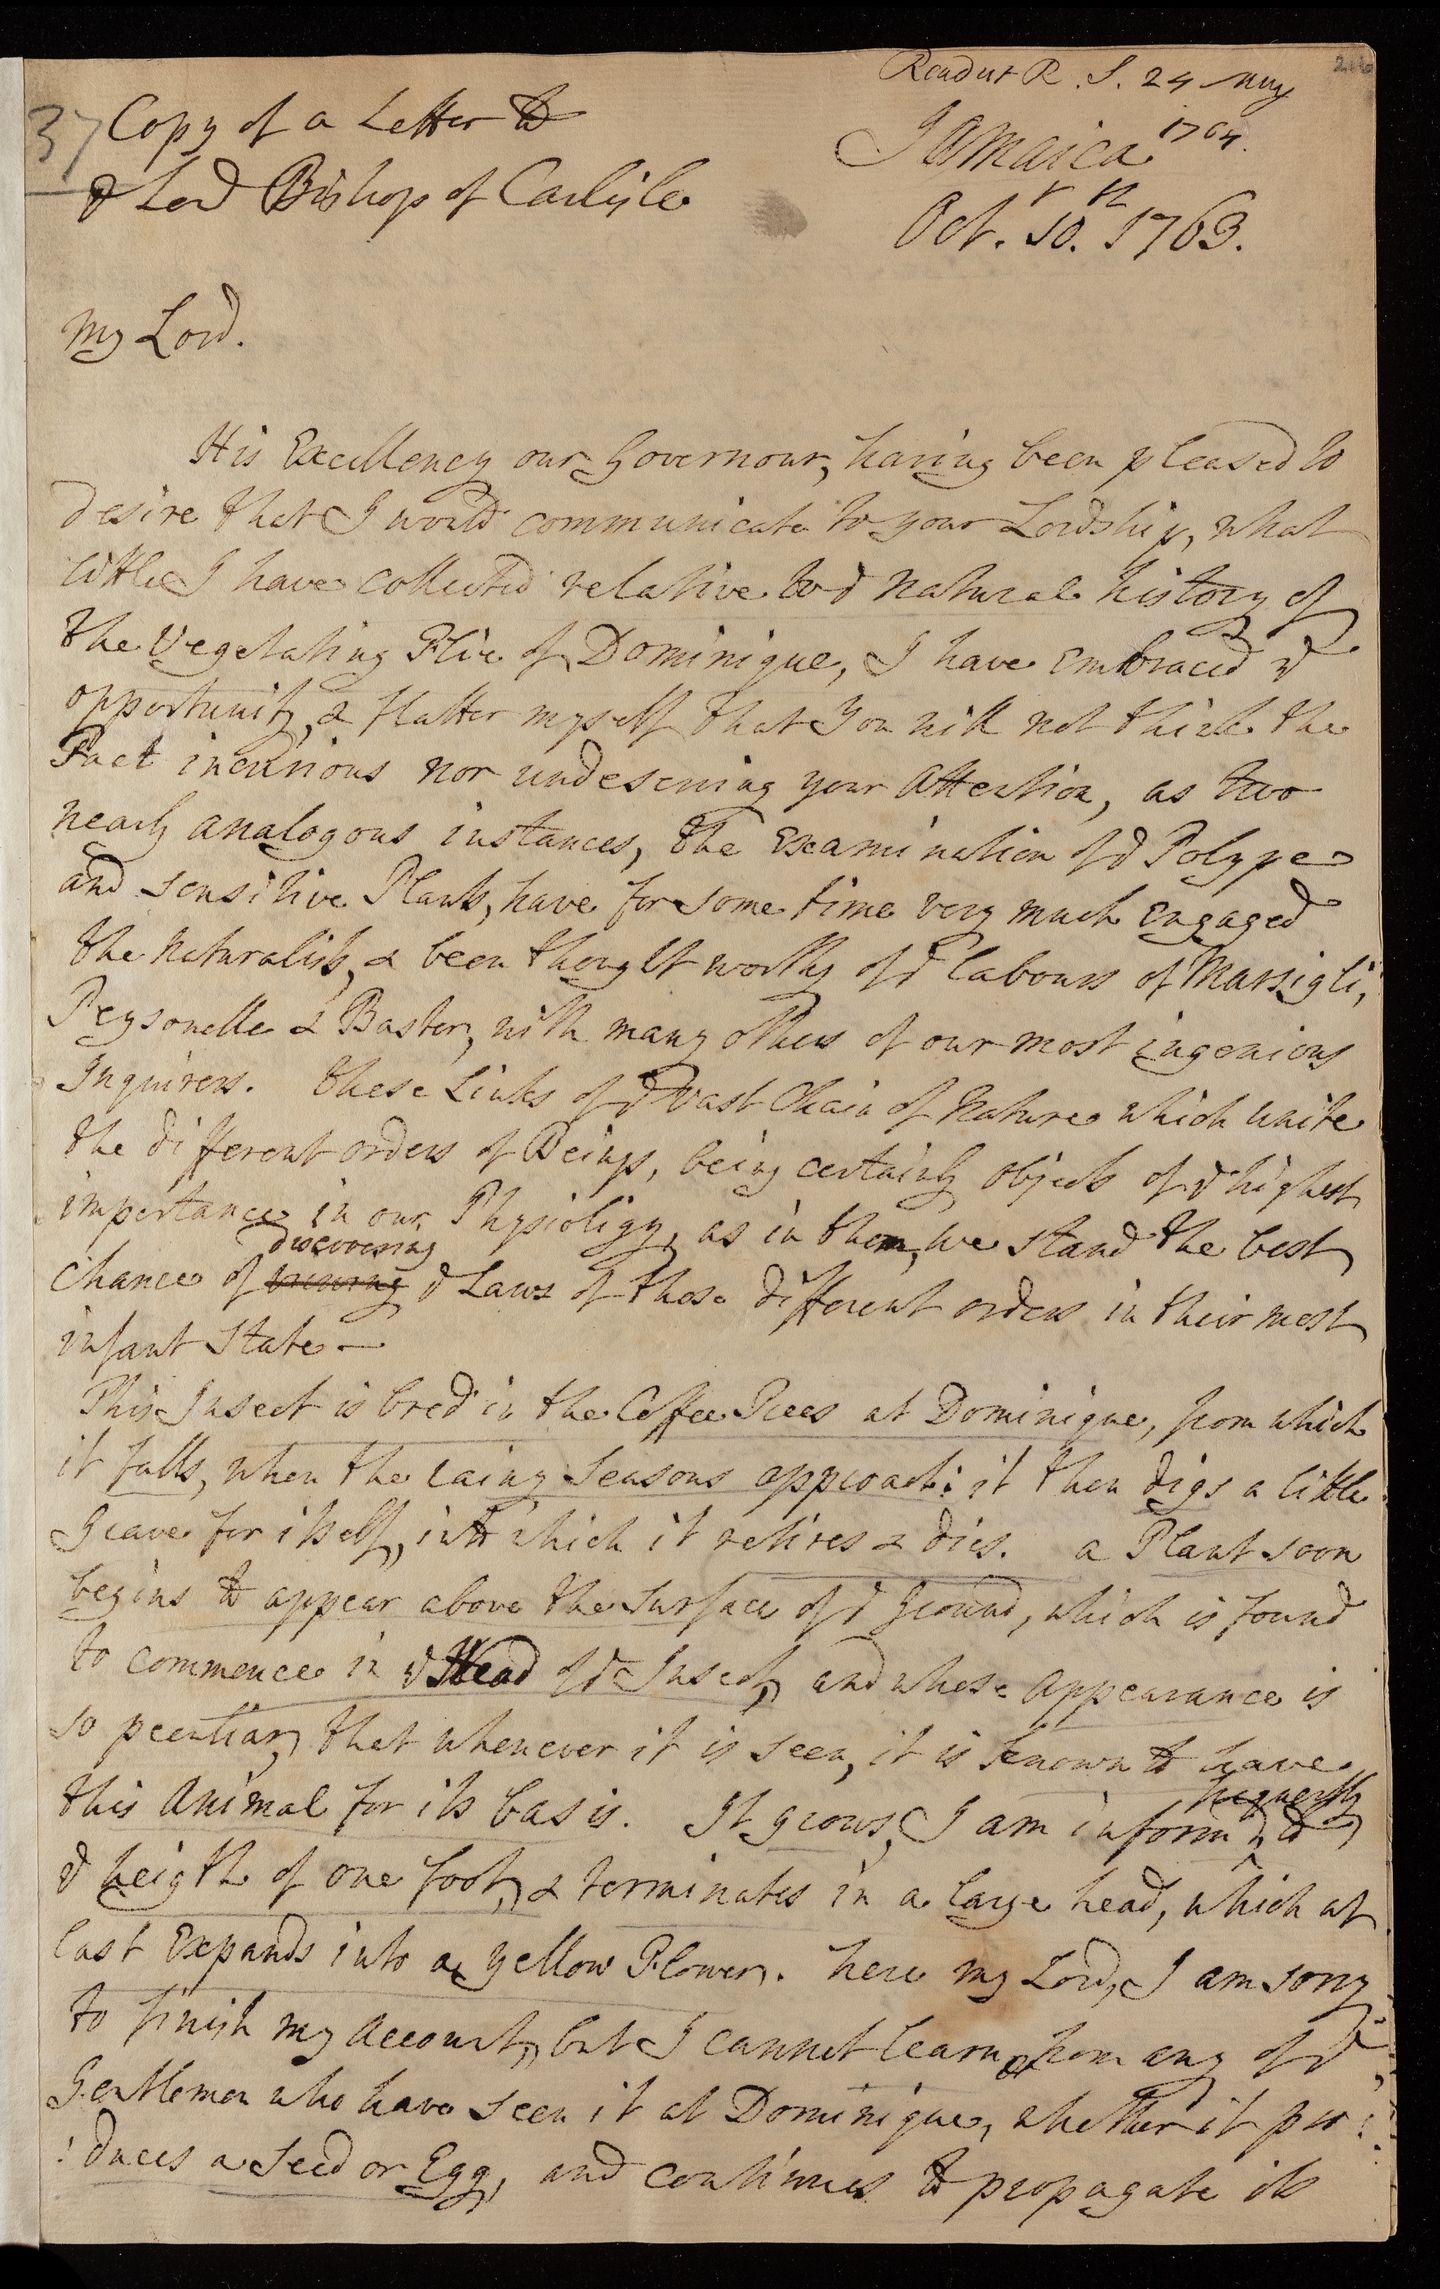 Read at R. S. 24 May
1764.
216
37
Copy of a Letter to
ye Lord Bishop of Carlisle
Jamaica
Octr. 10th. 1763.
My Lord.
His Excellency our Governour, having been pleased to
desire that I would communicate to your Lordship, what
little I have collected relative to ye natural history of
the Vegetating Flie of Dominique, I have embraced ye
opportunity, & flatter myself that You will not think the
Fact incurious nor undeserving your Attention, as two
nearly analogous instances, the Examination of ye Polype
and sensitive Plants, have for some time very much engaged
the naturalists, & been thought worthy of ye labours of Marsigli,
Peysonelle & Baster, with many others of our most ingenious
Inquirers. These Links of ye vast Chain of Nature which unite
the different orders of Beings, being certainly objects of ye highest
importance in our Physioligy, as in them, we stand the best
discovering
Chance of viewing ye Laws of those different orders in their most
infant State —
This Insect is bred in the Coffee Trees at Dominique, from which
it falls, when the rainy Seasons approach: it then digs a little
Grave for itself, into which it retires & dies. a Plant soon
begins to appear above the surface of ye Ground, which is found
to commence in ye Head of ye Insect, and whose appearance is
so peculiar, that whenever it is seen, it is known to have
this Animal for its basis. It grows, I am inform'd, to
frequently
ye heigth of one foot, & terminates in a large head, which at
last Expands into a yellow Flower. here my Lord, I am sorry
to finish my Account, but I cannot learn from any of ye
Gentlemen who have seen it at Dominique, whether it pro:
:duces a seed or Egg, and continues to propagate its